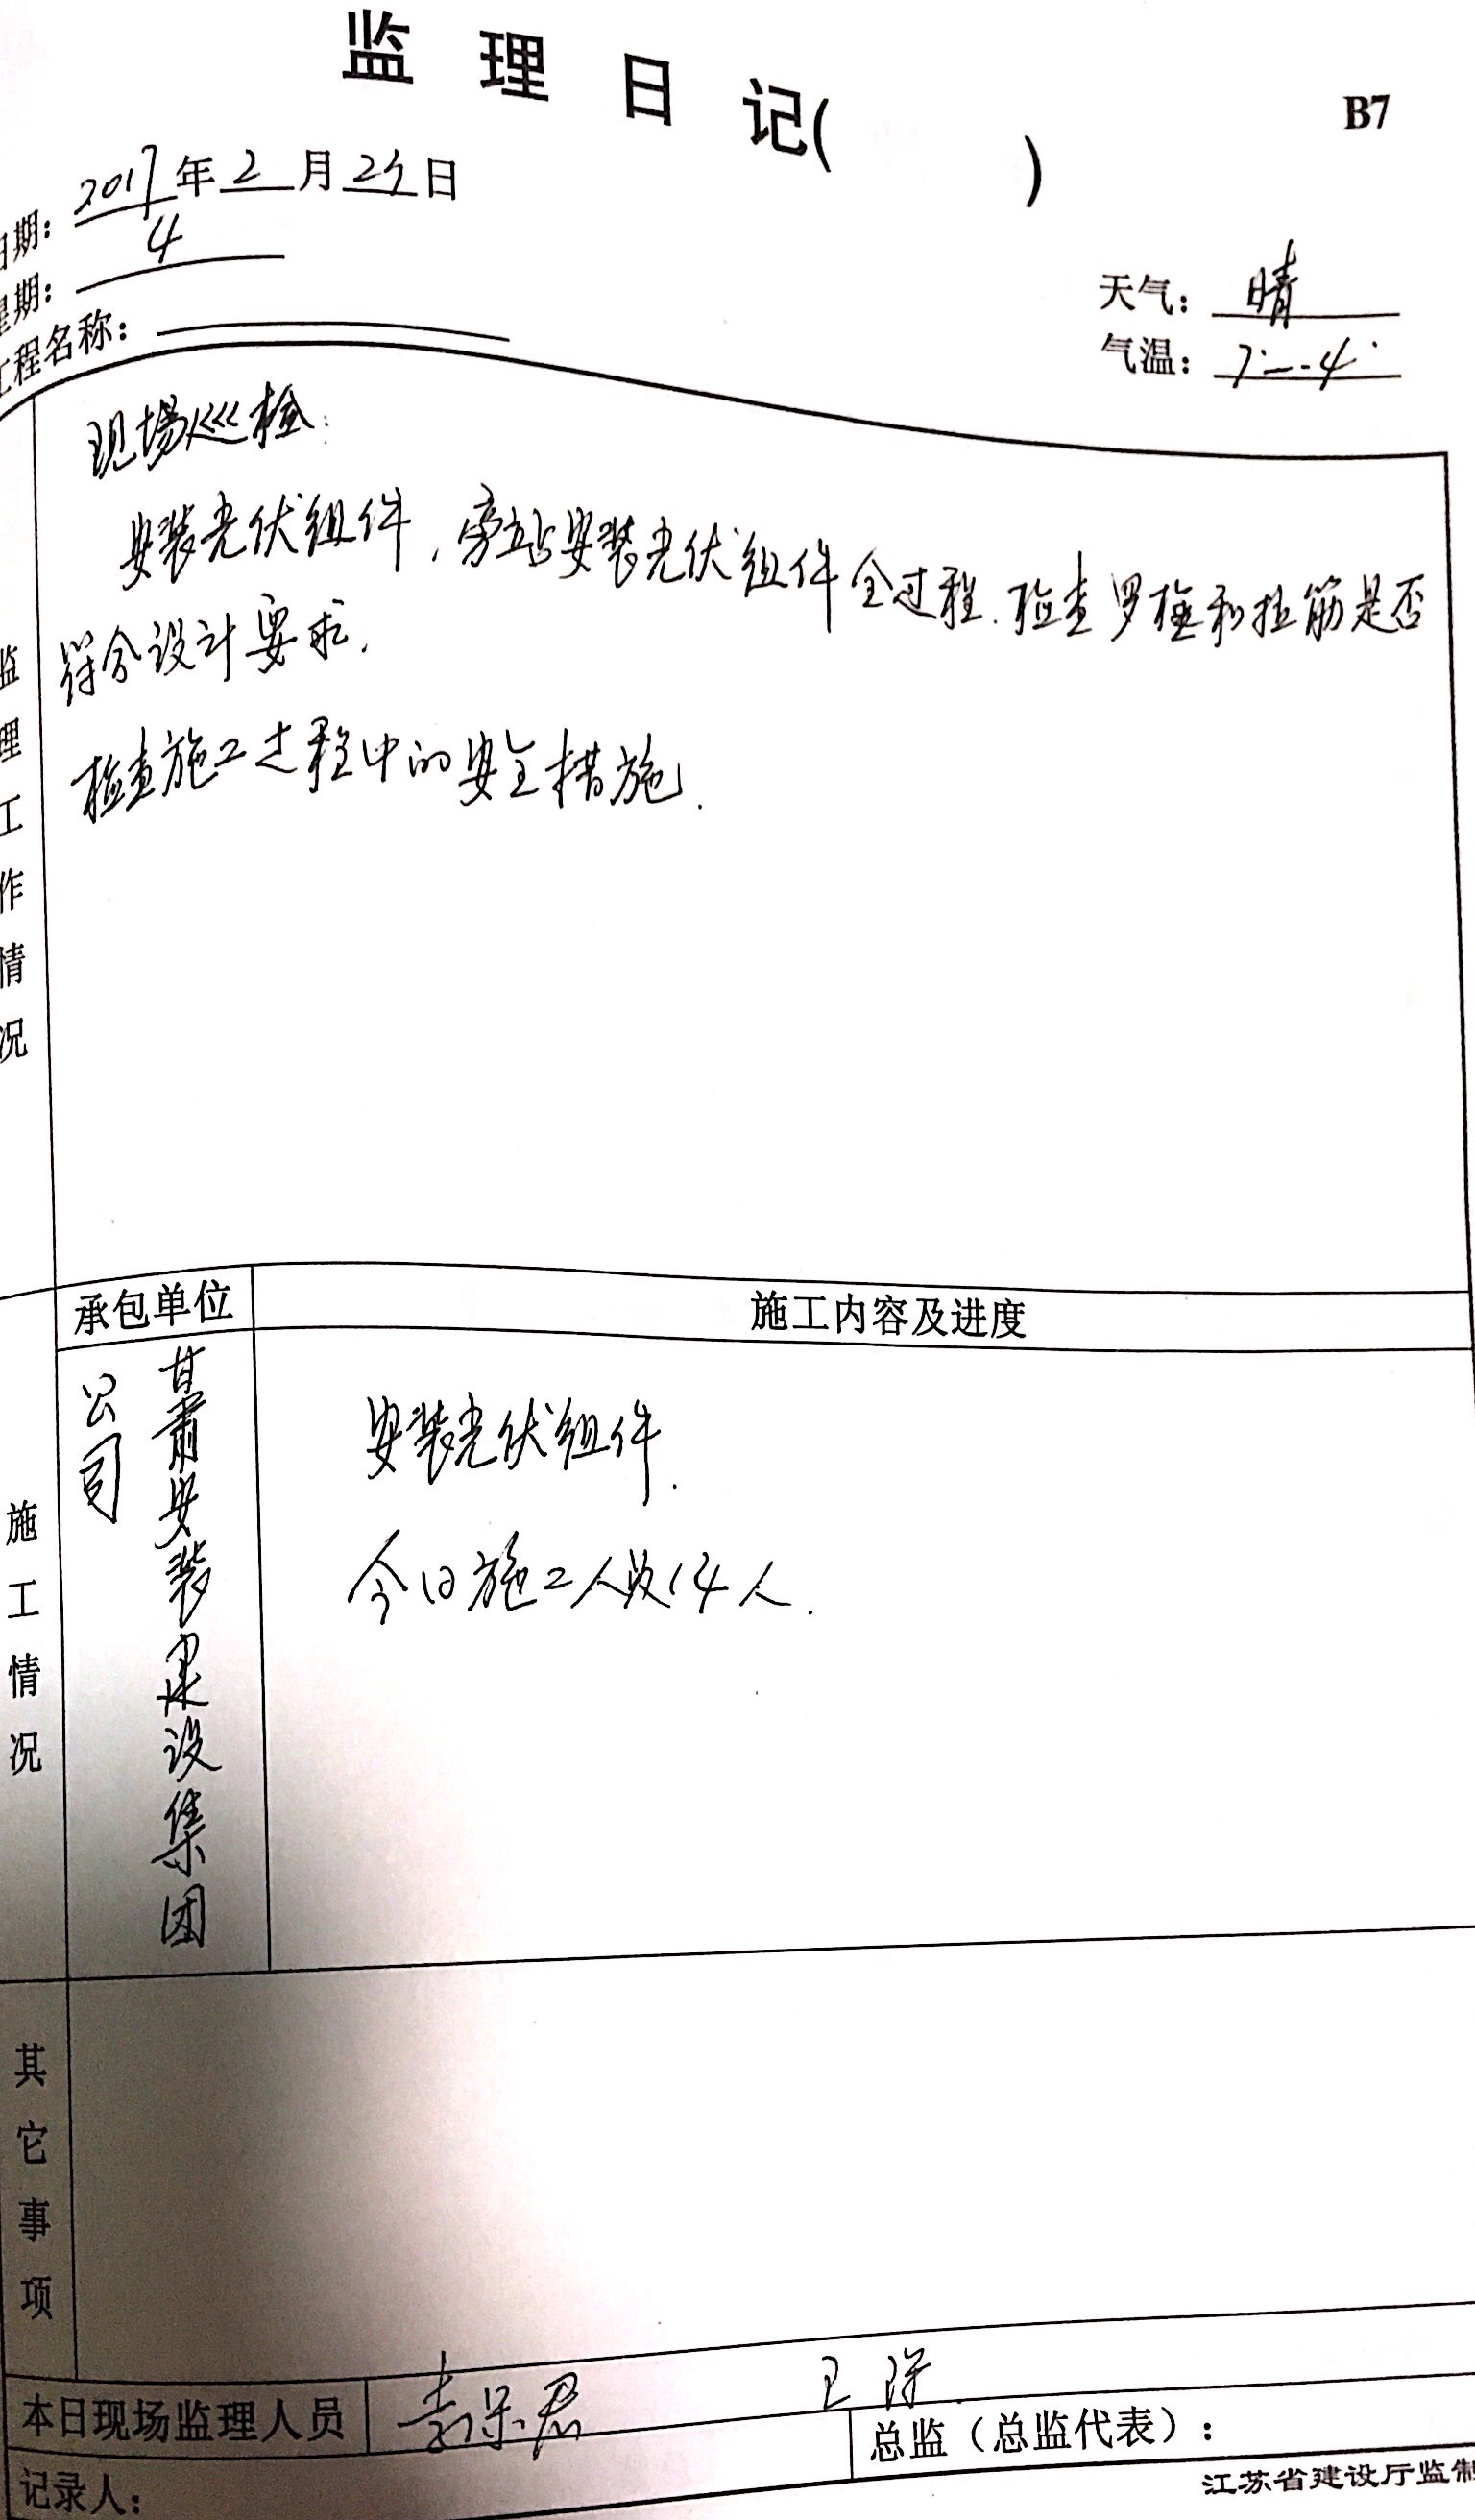 监 理 日 记( )
B7
日期: 2017年 2 月 23日
星期: 4
工程名称:
天气: 晴
气温: 7°--4°
现场巡检:
安装光伏组件,旁站安装光伏组件全过程.检查罗栓和拉筋是否
符合设计要求.
检查施工过程中的安全措施.
监理工作情况
承包单位
施工内容及进度
甘肃安装建设集团
公司
安装光伏组件.
今日施工人数14人.
施工情况
其它事项
本日现场监理人员
总监(总监代表):
记录人:
江苏省建设厅监制